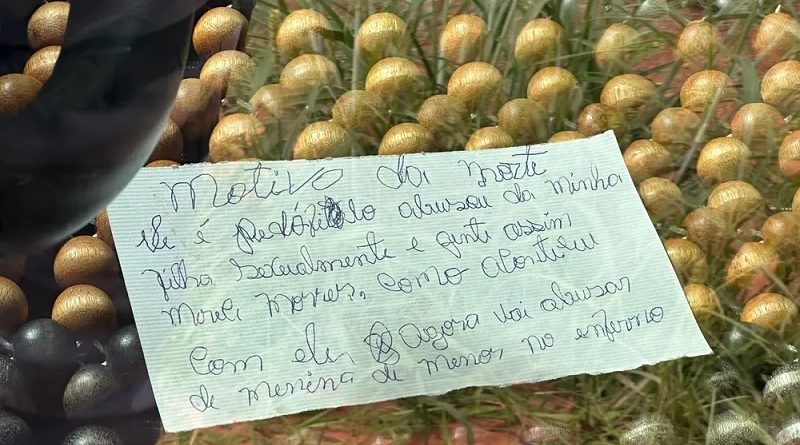 Motivo da morte
Ele é pedófilo abusou da minha
filha sexualmente e gente assim
mereci morrer, como aconteceu
com ele, Agora vai abusar
de menina de menor no enferno